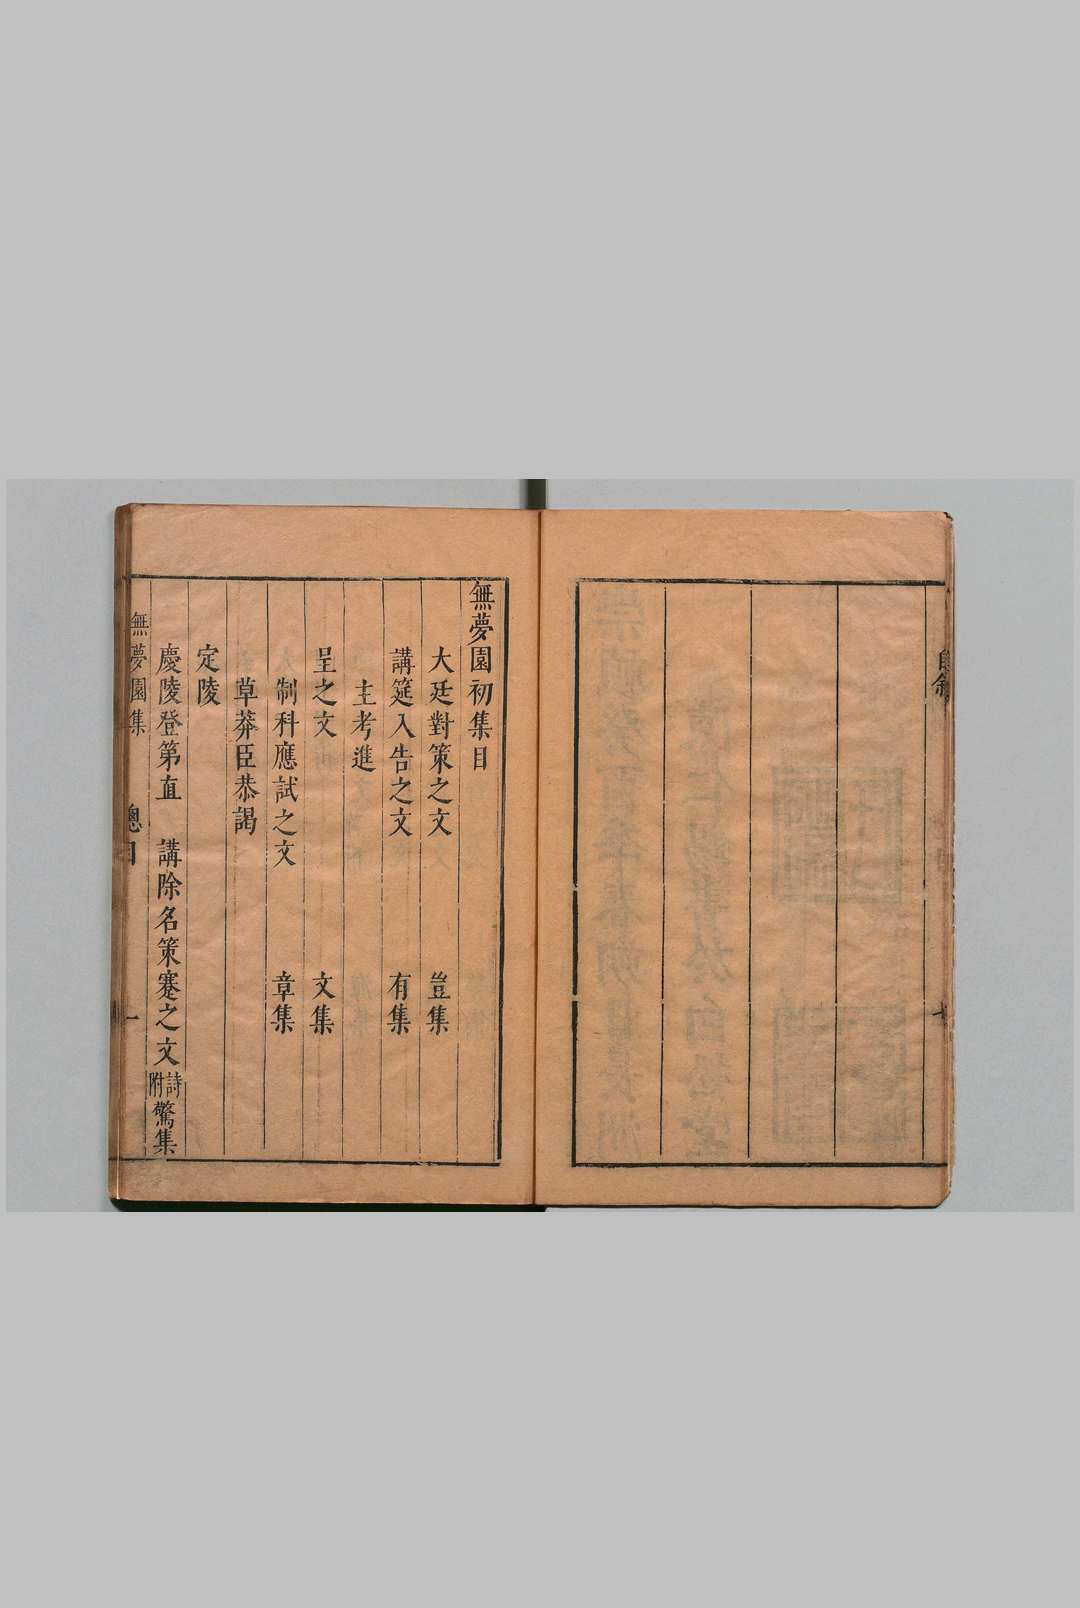 自敘
七
無夢園初集目
大廷對策之文 豈集
講筵入告之文 有集
主考進
呈之文 文集
制科應試之文 章集
草莽臣恭謁
定陵
慶陵登第直 講除名策蹇之文 詩附 驚集
無夢園集 總目 一